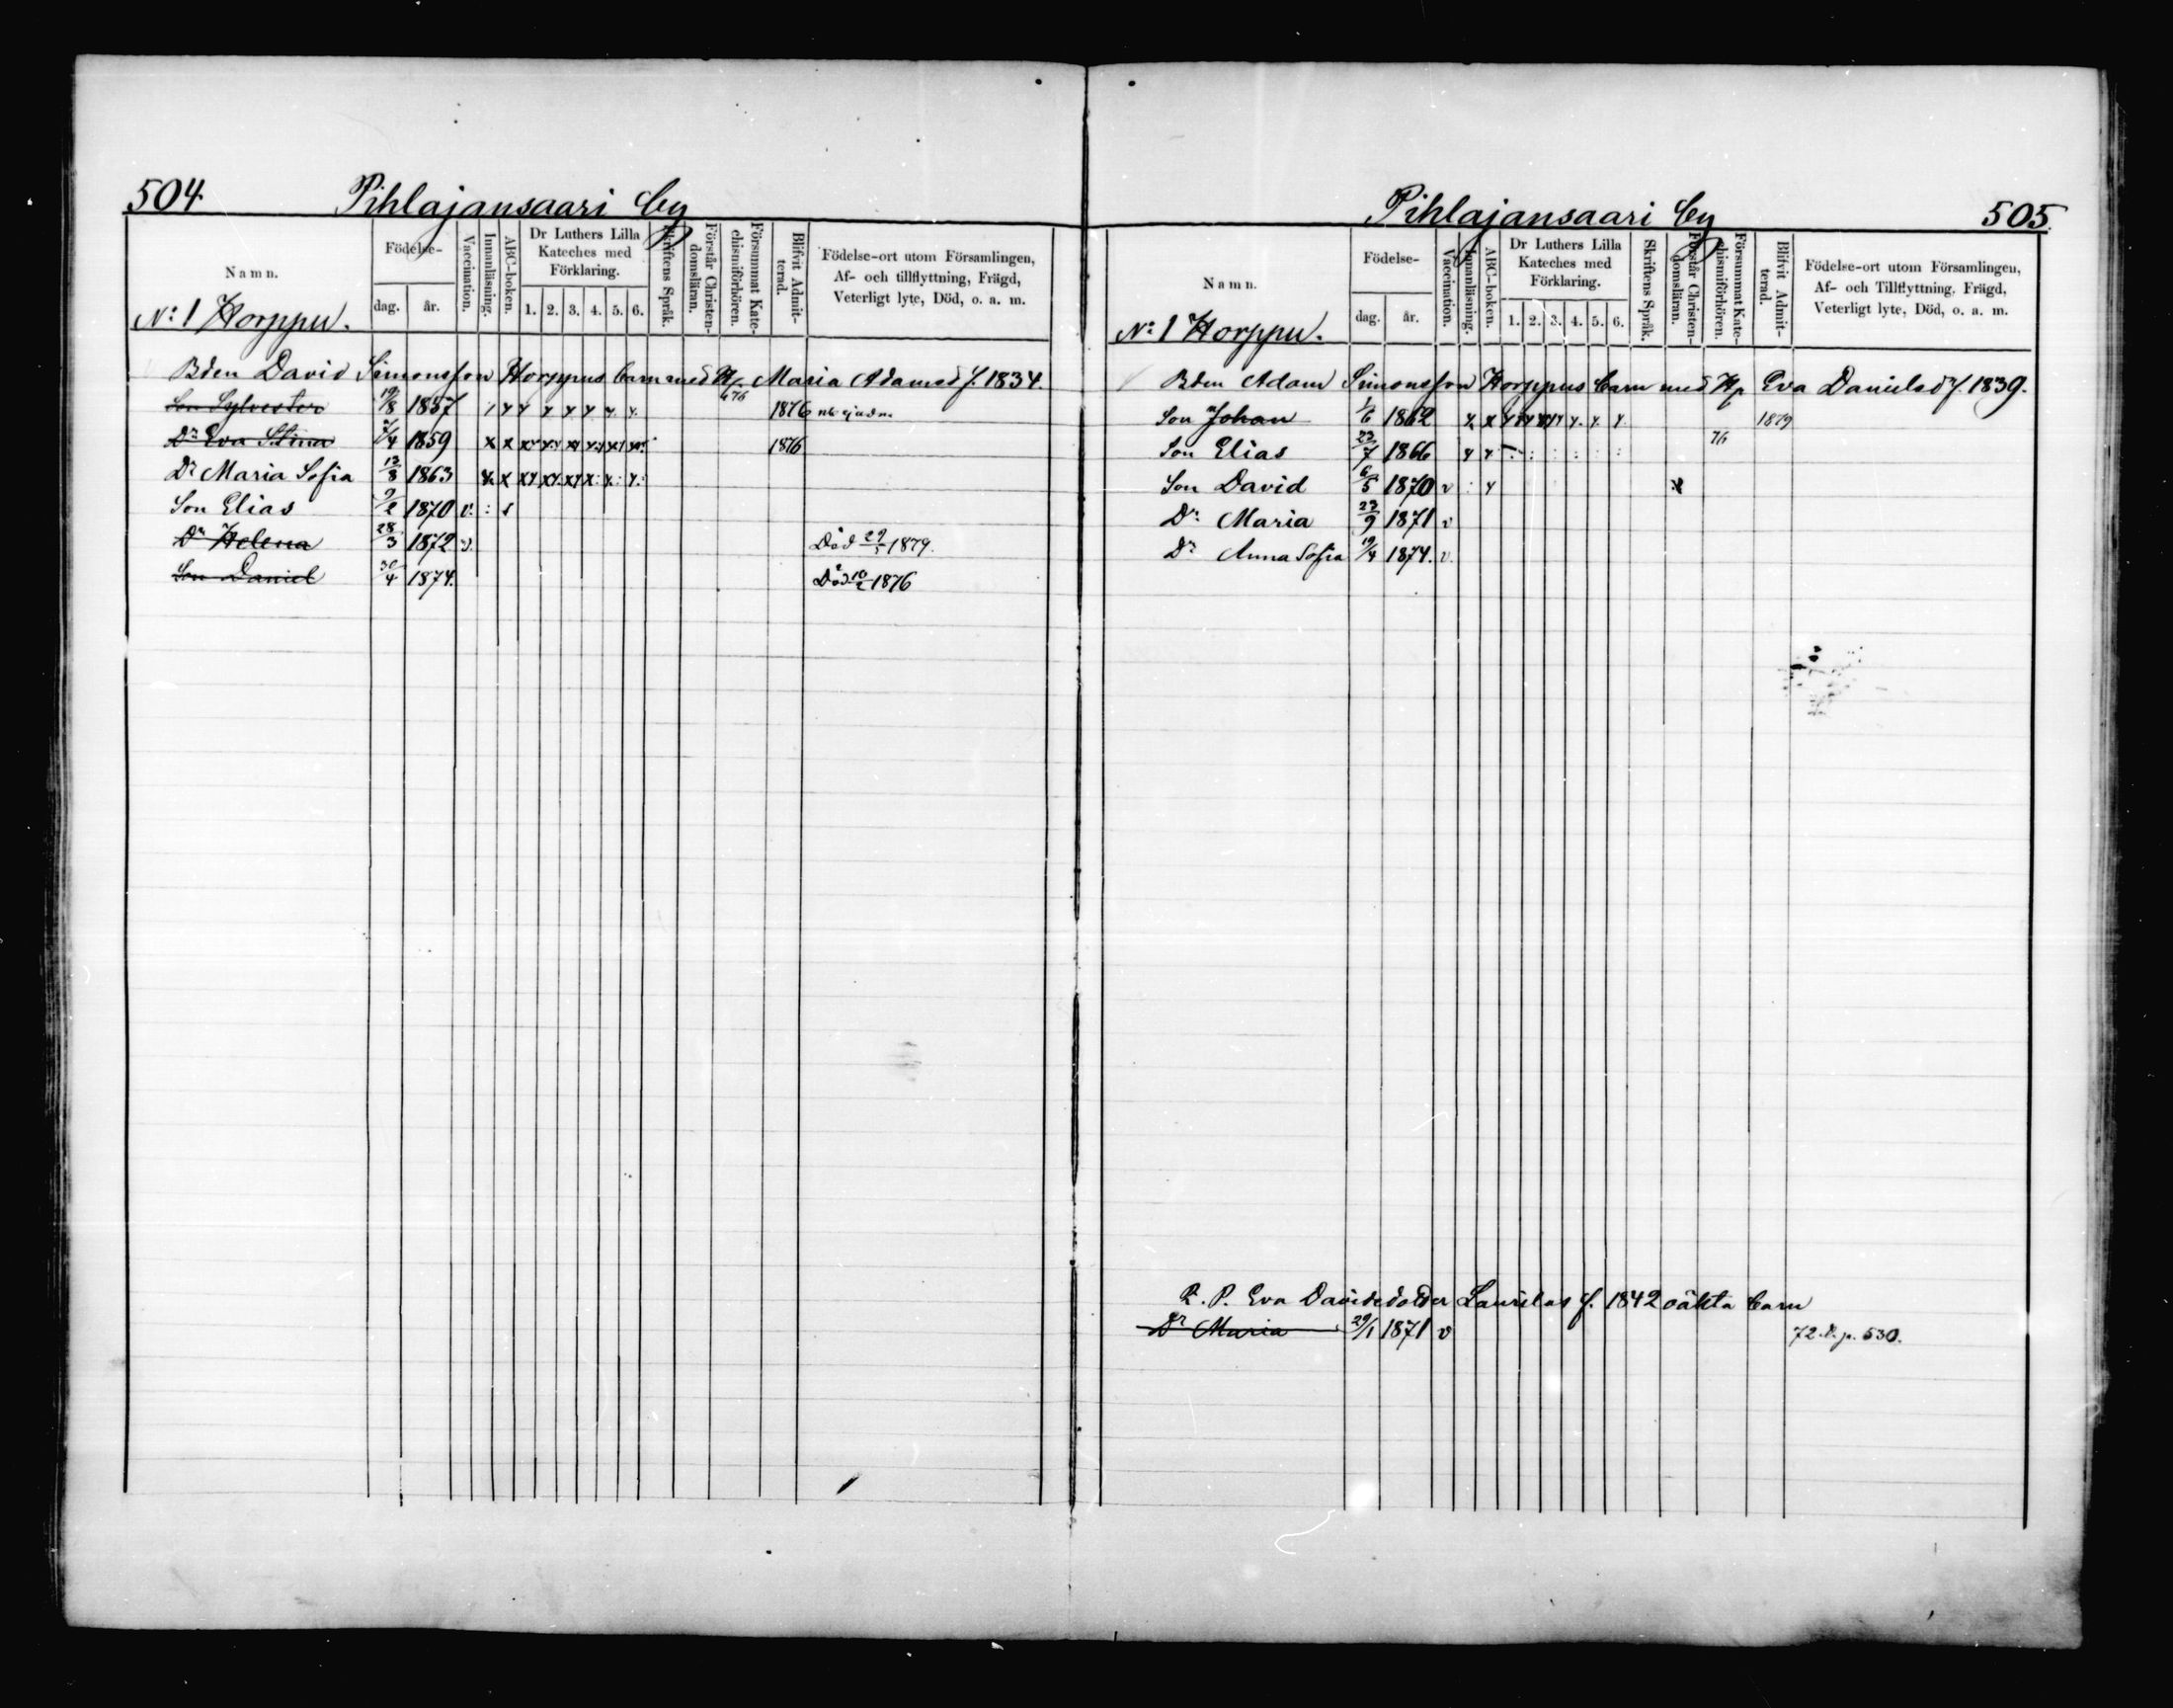 504.
Pihlajansaari by
Namn.
Födelse-
dag.
år.
Vaccination.
Innanläsning.
ABC-boken.
Dr Luthers Lilla
Kateches med
Förklaring.
1. 2. 3. 4. 5. 6.
Skriftens Språk.
Förstår Christen-
domsläran.
Försummat Kate-
chismiförhören.
Blifvit Admit-
terad.
Födelse-ort utom Församlingen,
Af- och tillflyttning, Frägd,
Veterligt lyte, Död, o. a. m.
No: 1 Horppu.
Bden David Simonsson Horppus barn med H. Maria Adamsd f. 1834.
Son Sylvester 19/8 1857 1876
Dr Eva Stina 7/4 1859 1876
Dr Maria Sofia 13/8 1863
Son Elias 9/2 1870 v.
Dr Helena 28/3 1872 v. Död 29/5 1879.
Son Daniel 30/4 1874. Död 10/2 1876
Pihlajansaari by
505.
Namn.
Födelse-
dag.
år.
Vaccination.
Innanläsning.
ABC-boken.
Dr Luthers Lilla
Kateches med
Förklaring.
1. 2. 3. 4. 5. 6.
Skriftens Språk.
Förstår Christen-
domsläran.
Försummat Kate-
chismiförhören.
Blifvit Admit-
terad.
Födelse-ort utom Församlingen,
Af- och Tillflyttning, Frägd,
Veterligt lyte, Död, o. a. m.
No: 1 Horppu.
Bden Adam Simonsson Horppus barn med H. Eva Danielsd f. 1839.
Son Johan 1/6 1862 1879
Son Elias 22/7 1866 76
Son David 6/5 1870 v
Dr Maria 23/9 1871 v
Dr Anna Sofia 19/4 1874. v.
P. Eva Davidsdotter Laurilas f. 1842 oäkta barn
Dr Maria 29/1 1871 v 72. p. 530.